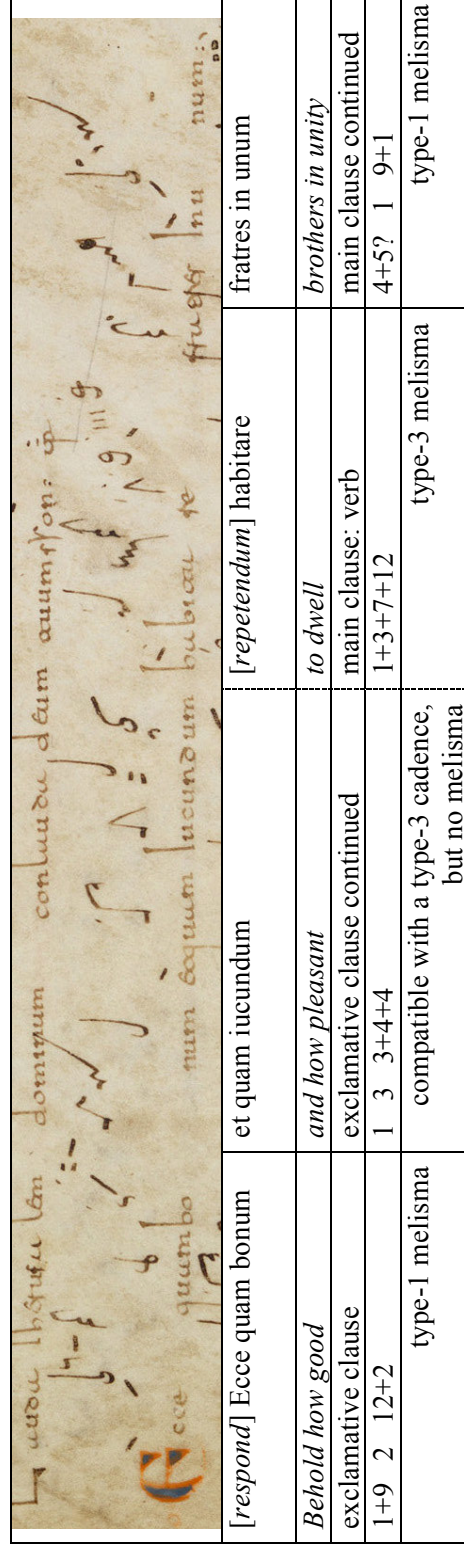 dominum conlauda deum
Ecce quambo num etquam Iucundum habita re fratres Inu num:
[respond] Ecce quam bonum et quam iucundum [repetendum] habitare fratres in unum
Behold how good and how pleasant to dwell brothers in unity
exclamative clause exclamative clause continued main clause: verb main clause continued
1+9 2 12+2 1 3 3+4+4 1+3+7+12 4+5? 1 9+1
type-1 melisma compatible with a type-3 cadence, type-3 melisma type-1 melisma
but no melisma